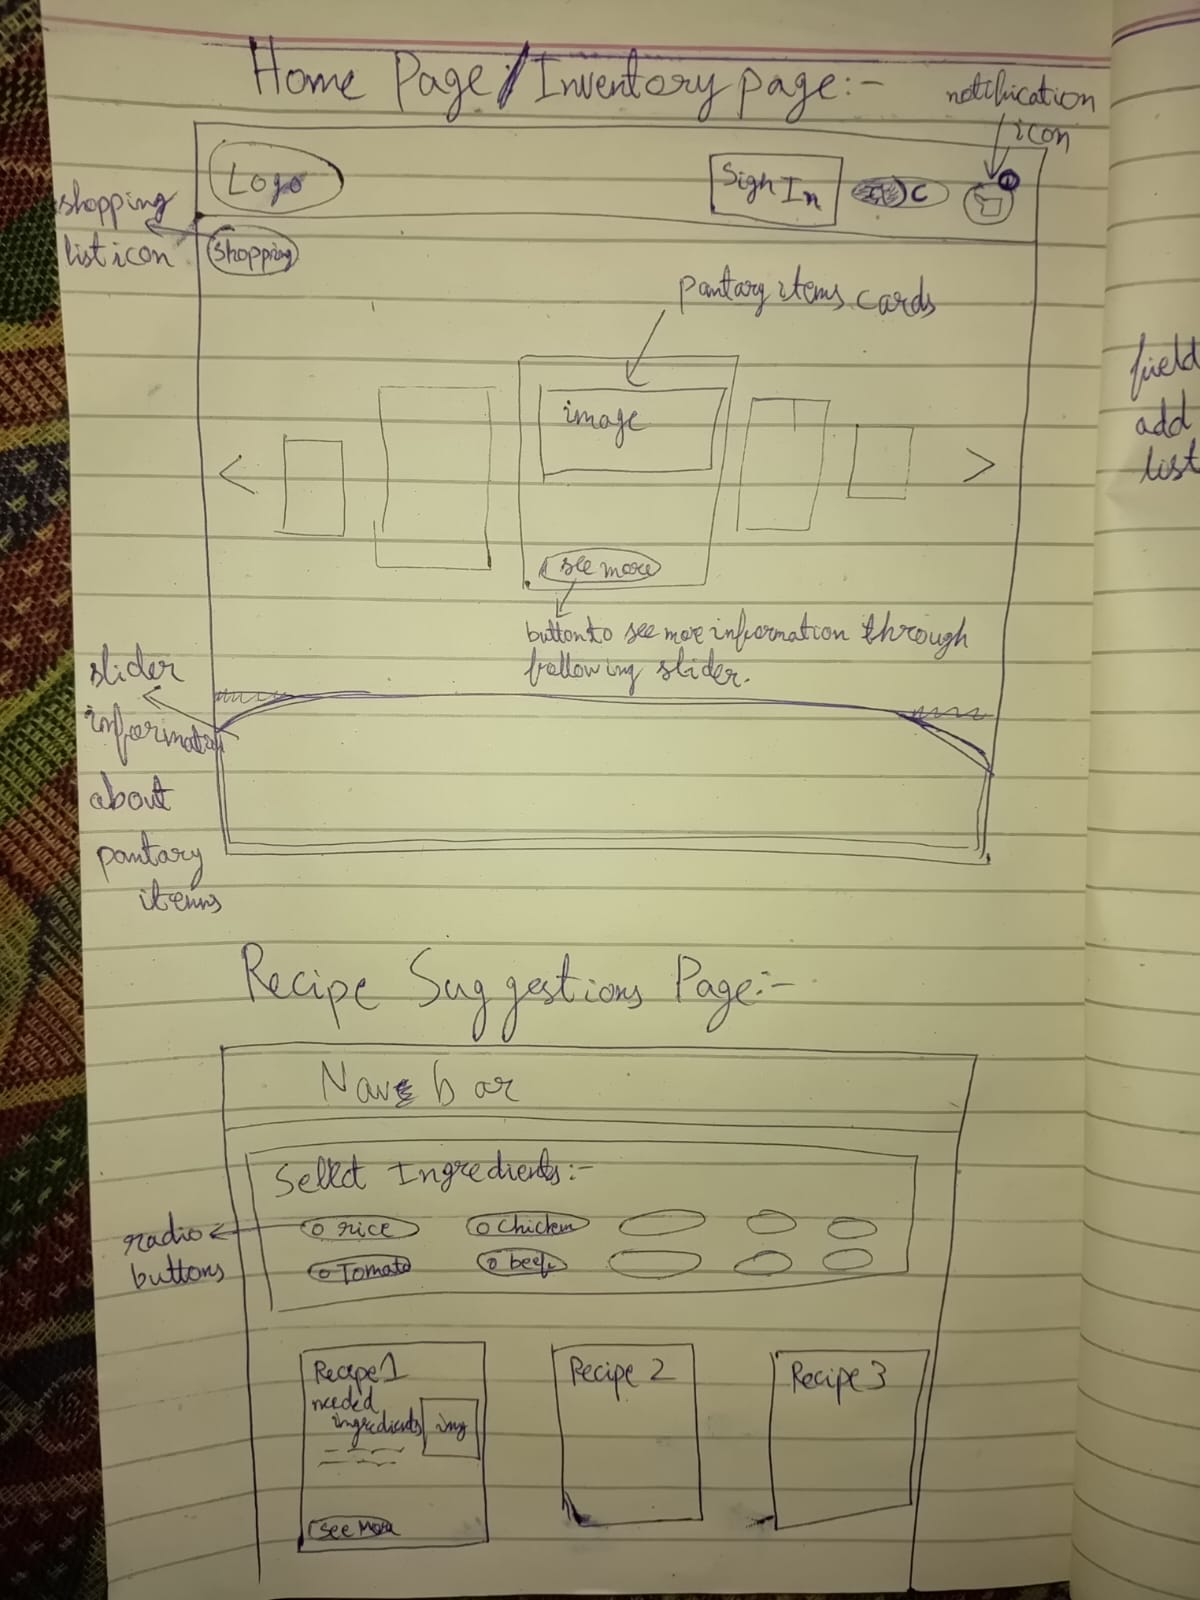 Home Page/Inventory page:-
notification
icon
Logo
Sign In
C
shopping
list icon
shopping
pantary items cards
image
<
>
see more
button to see more information through
following slider.
slider
about
pantary
items
field
add
list
Recipe Suggestions Page:-
Nav bar
Select Ingredients:-
radio
buttons
rice
Chicken
Tomato
beef
Recipe 1
needed
ingredients
img
See More
Recipe 2
Recipe 3